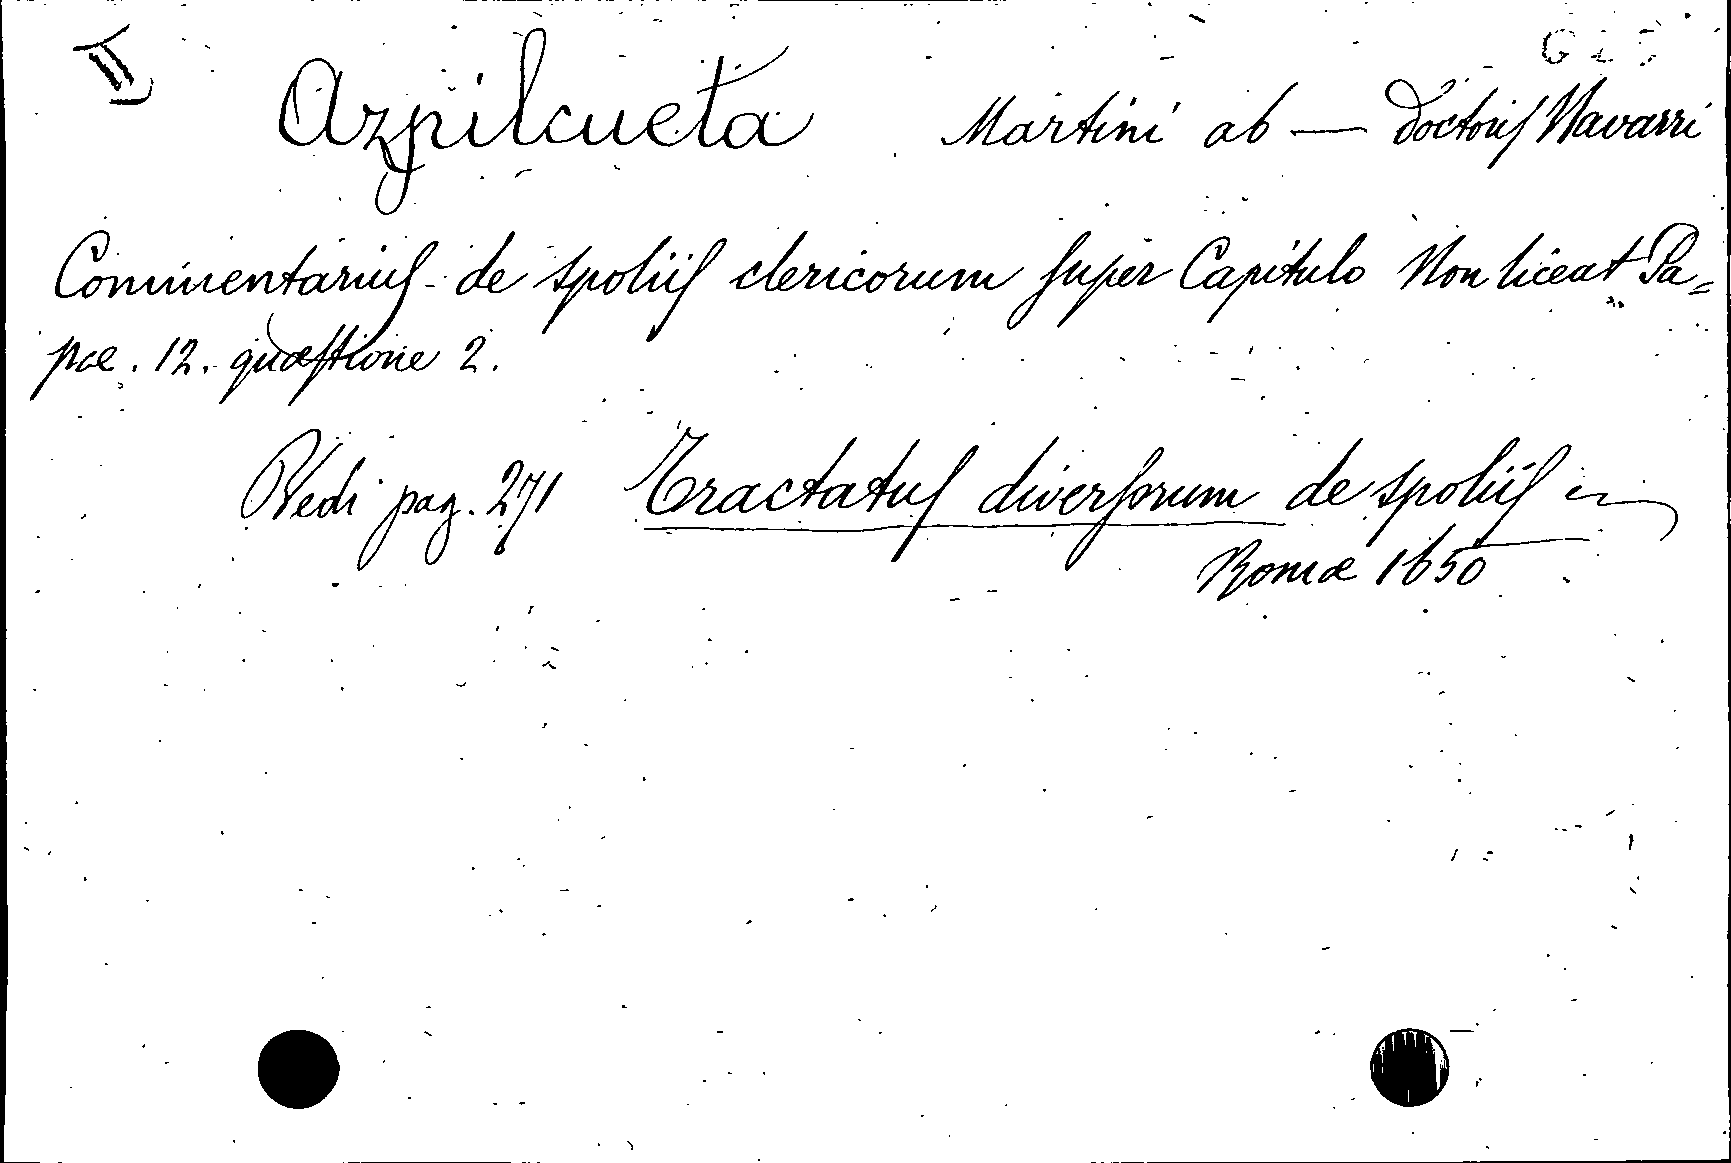 II
Azpilcueta Martini ab — Doctoris Navarri
Commentarius de spoliis clericorum super Capitulo Non liceat Pa=
pae. 12. quæstione 2.
Vedi pag. 271 Tractatus diversorum de spoliis
Romæ 1650